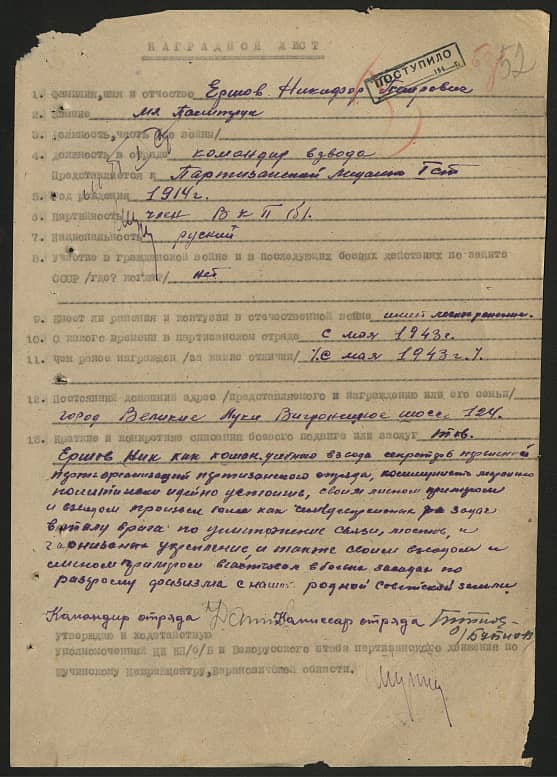 52
ПОСТУПИЛО
НАГРАДНОЙ ЛИСТ
1. Фамилия, имя и отчество Ершов Никифор Петрович
2. Звание мл Политрук
3. Должность, часть /до войны/
4. Должность в отряде командир взвода
Представляется к Партизанской Медалью I ст
5. Год рождения 1914 г.
6. Партийность член В К П (б).
7. Национальность руский
8. Участие в гражданской войне и в последующих боевых действиях по защите
СССР /где? когда?/ нет
9. Имеет ли ранения и контузии в отечественной войне имеет легкое ранение.
10. С какого времени в партизанском отряде С мая 1943 г.
11. Чем ранее награжден /за какие отличия/ /.С мая 1943 г./.
12. Постоянный домашний адрес /представляемого к награждению или его семьи/
город Великие Луки шосс 124.
13. Краткие и конкретные описания боевого подвига или заслуг тов.
Ершов Ник как коман. взвода секретарь первичной
парторганизаций партизанского отряда, коммунист морально
политически идейно устойчив, своим личном примером
и взводом
врага по уничтожение связи, мостов, и
гарнизоных укрепление и также своим взводом и
личном примером в боевых засадах по
разгрому фашизма с нашей родной Советской земли.
Командир отряда Комиссар отряда
утверждаю и ходатайствую
уполномоченный ЦК КП/б/Б и Белорусского штаба партизанского движения по
Щучинскому межрайцентру, Барановичской области.